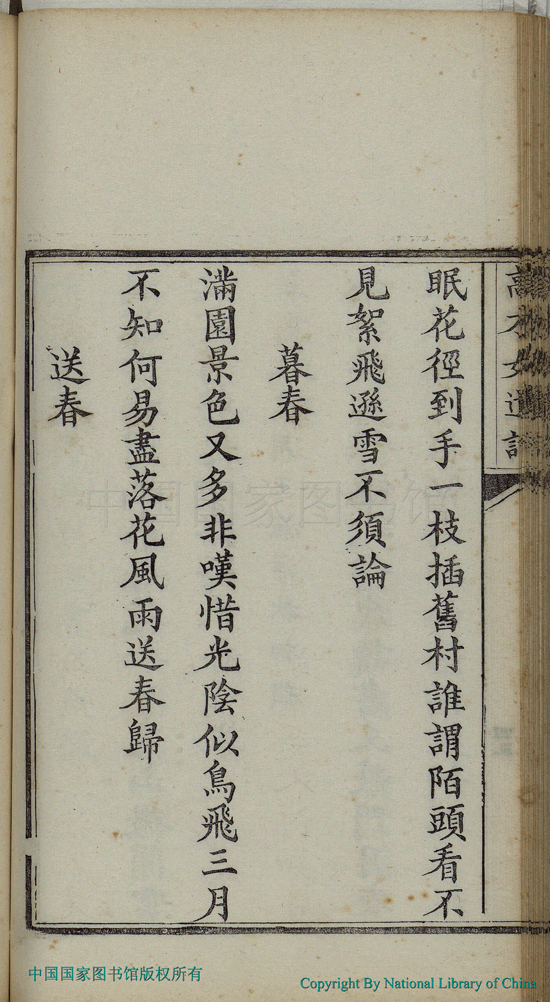 眠花徑到手一枝插舊村誰謂陌頭看不
見絮飛遜雪不須論
暮春
滿園景色又多非嘆惜光陰似鳥飛三月
不知何易盡落花風雨送春歸
送春
中国国家图书馆
中国国家图书馆版权所有
Copyright By National Library of China